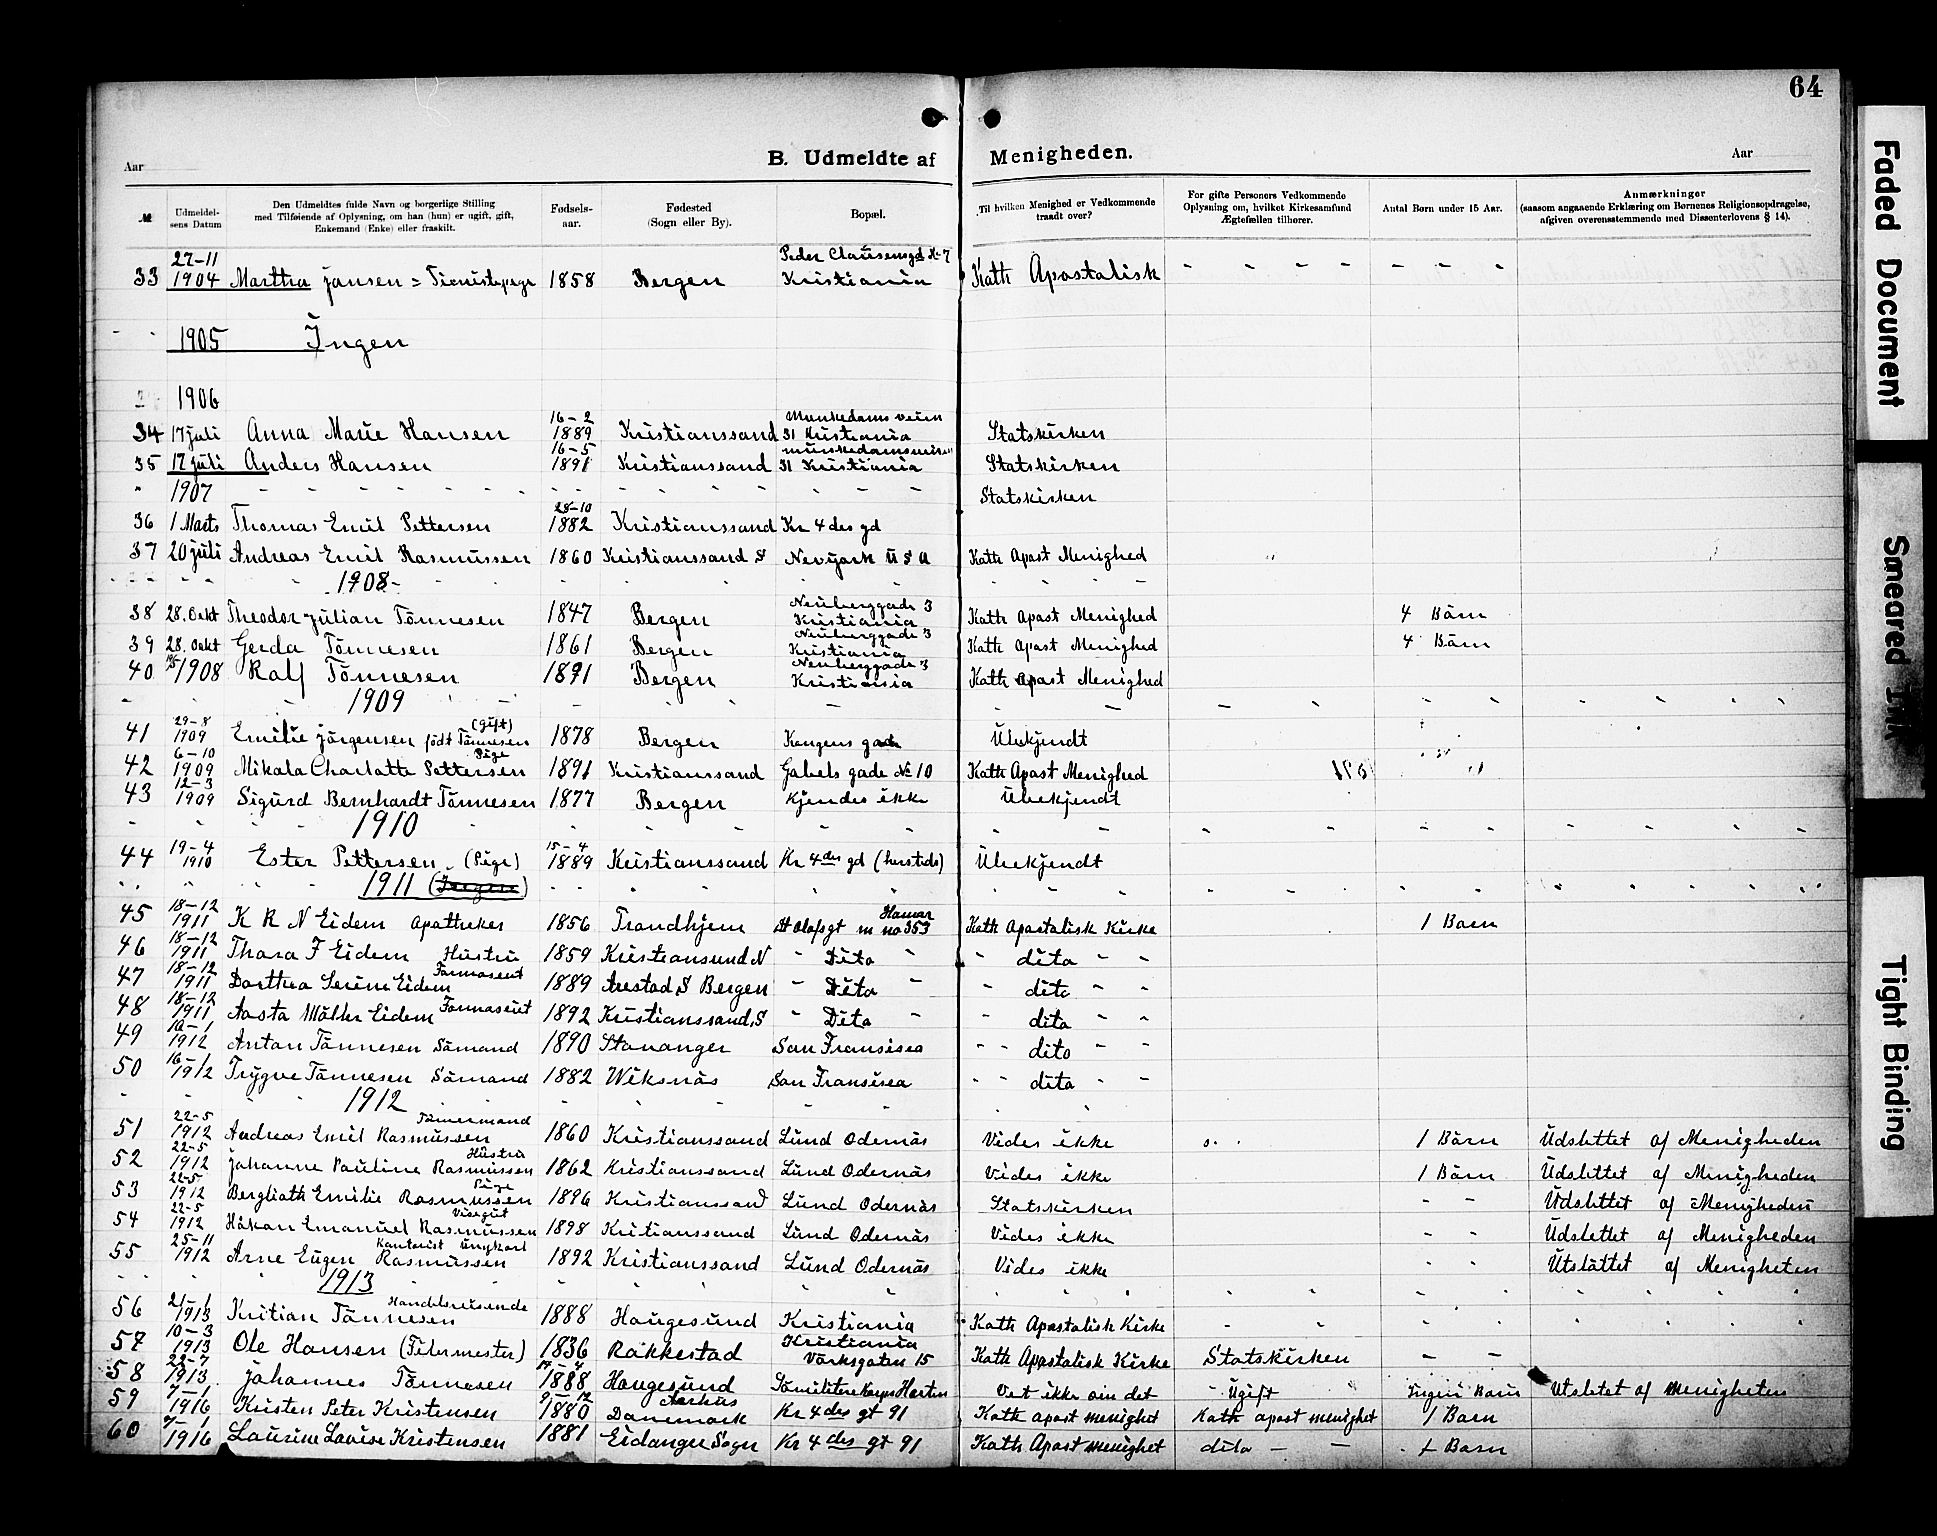 64
B. Udmeldte af Menigheden.
Aar Aar
№ Udmeldel-sens Datum Den Udmeldtes fulde Navn og borgerlige Stilling med Tilføiende af Oplysning, om han (hun) er ugift, gift, Enkemand (Enke) eller fraskilt. Fødsels-aar. Fødested (Sogn eller By). Bopæl. Til hvilken Menighed er Vedkommende traadt over? For gifte Personers Vedkommende Oplysning om, hvilket Kirkesamfund Ægtefællen tilhører. Antal Børn under 15 Aar. Anmærkninger (saasom angaaende Erklæring om Børnenes Religionsopdragelse, afgiven overensstemmende med Dissenterlovens § 14).
33 27-11 1904 Martha Jansen 1858 Bergen Peder Clausensgd № 7 Kristiania Kath Apostalisk
1905 Ingen
1906
34 17 juli Anna Marie Hansen 16-2 1889 Kristianssand Munkedamsveien 31 Kristiania Statskirken
35 17 juli Anders Hansen 16-5 1891 Kristianssand Munkedamsveien 31 Kristiania Statskirken
1907 Statskirken
36 1 Marts Thomas Emil Pettersen 28-10 1882 Kristianssand Kr 4 des gd
37 20 juli Andreas Emil Rasmussen 1860 Kristianssand S Nevyark U S A Kath Apast Menighed
1908
38 28. Oekt Theodor Julian Tönnesen 1847 Bergen Neuberggade 3 Kristiania Kath Apast Menighed 4 Bärn
39 28. Oekt Gerda Tönnesen 1861 Bergen Neuberggade 3 Kristiania Kath Apast Menighed 4 Bärn
40 1908 Ralf Tönnesen 1891 Bergen Neuberggade 3 Kristiania Kath Apast Menighed
1909
41 29-8 1909 Emilie Jörgensen födt Tönnesen (Gift) 1878 Bergen Kongens gade Ubekjendt
42 6-10 1909 Mikala Charlotte Pettersen Pige 1891 Kristianssand Gabels gade № 10 Kath Apast Menighed
43 12-3 1909 Sigurd Bernhardt Tönnesen 1877 Bergen Kjendes ikke Ubekjendt
1910
44 19-4 1910 Ester Pettersen (Pige) 15-4 1889 Kristianssand Kr 4 des gd (hersteds) Ubekjendt
1911 (Ingen)
45 18-12 1911 K R N Eidem Apatheker 1856 Trandhjem St Olafsgt m no 353 Hamar Kath Apastalisk Kirke 1 Barn
46 18-12 1911 Thora F Eidem Hustru 1859 Kristiansund N " Dito " " dito " "
47 18-12 1911 Dorthea Serine Eidem 1889 Arestad S Bergen " Dito " " dito " "
48 18-12 1911 Aasta Möller Eidem 1892 Kristianssand S " Dito " " dito " "
49 16-1 1912 Anton Tönnesen Sömand 1890 Stavanger San Fransisca " " dito " "
50 16-1 1912 Trygve Tönnesen Sömand 1882 Wiksnäs San Fransisca " " dito " "
1912
51 22-5 1912 Andreas Emil Rasmussen Tömermand 1860 Kristianssand Lund Odernäs Vides ikke 1 Bärn Udslettet af Menigheden
52 22-5 1912 Johanne Pauline Rasmussen Hustru 1862 Kristianssand Lund Odernäs Vides ikke 1 Bärn Udslettet af Menigheden
53 22-5 1912 Bergliath Emilie Rasmussen Pige 1896 Kristianssand Lund Odernäs Statskirken - - Udslettet af Menigheden
54 22-5 1912 Håkan Emanuel Rasmussen Visergut 1898 Kristianssand Lund Odernäs Vides ikke - - Udslettet af Menigheden
55 25-11 1912 Arne Eugen Rasmussen Kontorist Ungkarl 1892 Kristianssand Lund Odernäs Vides ikke - - Utslättet af Menigheten
1913
56 2/1-1 1913 Kritian Tönnesen Handelsreisende 1888 Haugesund Kristiania Kath Apastalisk Kirke
57 10-3 1913 Ole Hansen (Filermester) 1836 Rakkestad Kristiania Varksgaten 15 Kath Apastalisk Kirke Statskirken - -
58 22-7 1913 Johannes Tönnesen 17-4 1888 Haugesund Vet ikke om det Ugift Ingen Barn Utsletet af Menigheten
59 7-1 1916 Kristen Peter Kristensen 9-12 1880 Aarhus Danemark Kr 4 des gt 91 Kath apast menighet Kath apast menighet 1 Barn
60 7-1 1916 Laurine Lovise Kristensen 1881 Eidanger Sogn Kr 4 des gt 91 Kath Apast menighet dito - - 1 Barn
Faded Document
Smeared Ink
Tight Binding